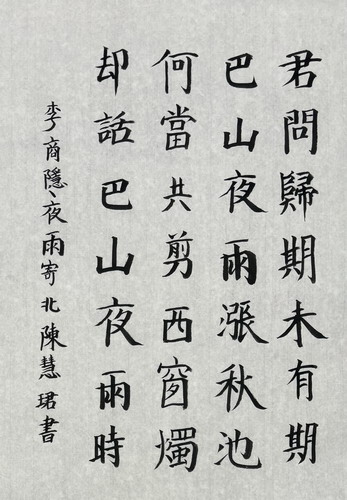 君問歸期未有期
巴山夜雨漲秋池
何當共剪西窗燭
却話巴山夜雨時
李商隱、夜雨寄北陳慧珺書